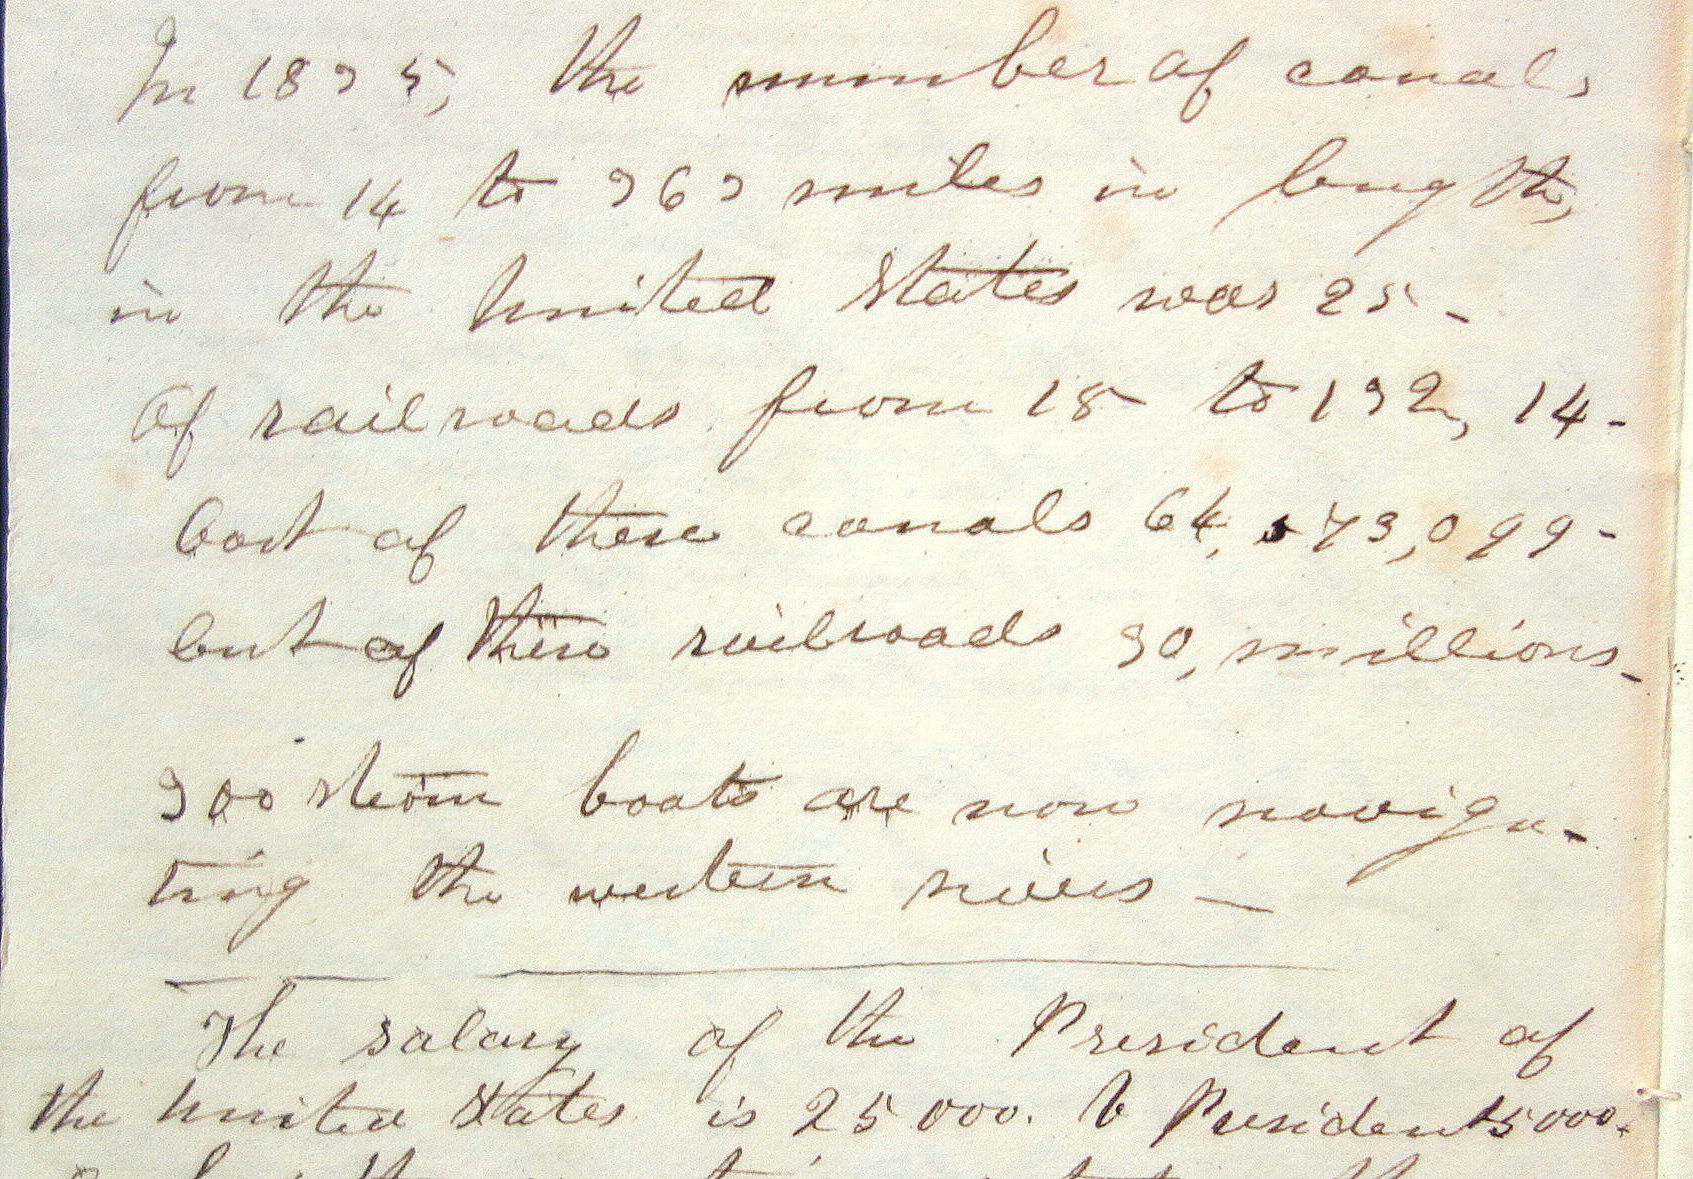 In 1835, the number of canals
from 14 to 363 miles in length,
in the United States was 25 -
Of railroads from 15 to 132, 14 -
Cost of these canals 64, 573,099 -
Cost of these railroads 30, millions -
300 steam boats are now naviga-
ting the western rivers —
The salary of the President of
the United States is 25000. V President 5000.